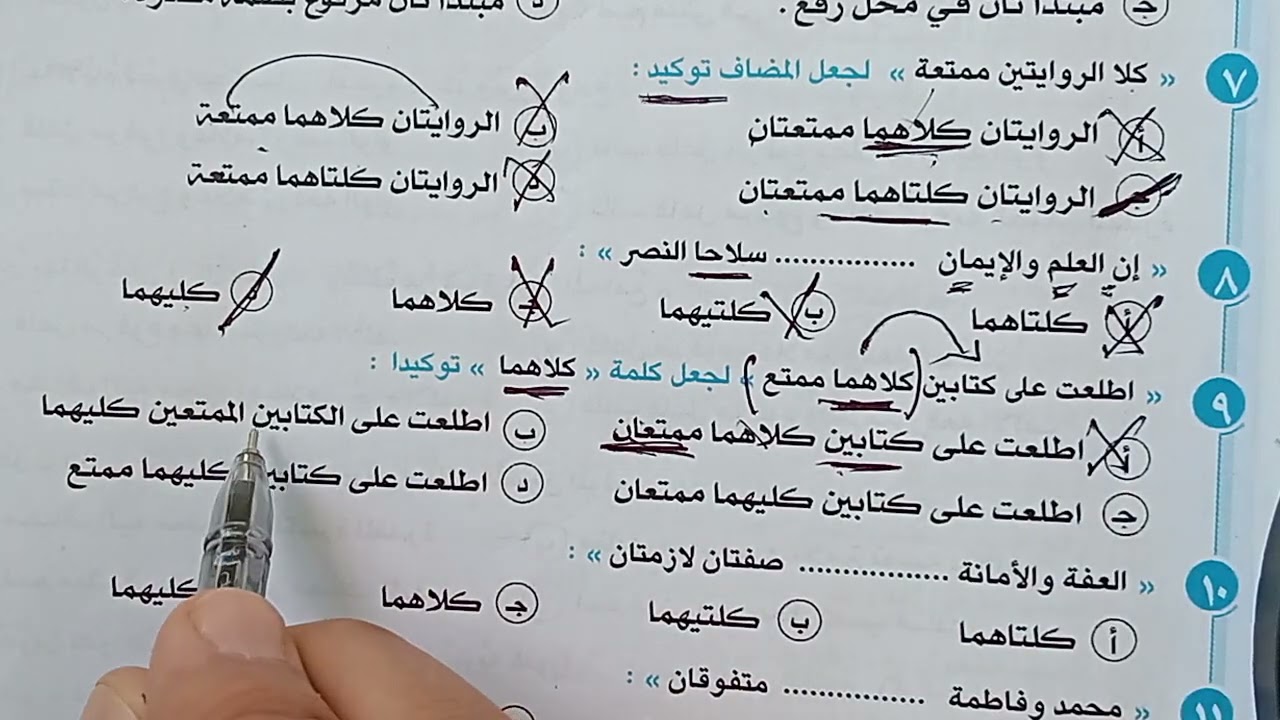 ج مبتدأ ثان في محل رفع .
د مبتدأ ثان مرفوع
٧ « كلا الروايتين ممتعة » لجعل المضاف توكيد :
أ الروايتان كلاهما ممتعتان ب الروايتان كلاهما ممتعة
ج الروايتان كلتاهما ممتعتان د الروايتان كلتاهما ممتعة
٨ « إن العلم والإيمان ................ سلاحا النصر » :
أ كلتاهما ب كلتيهما ج كلاهما د كليهما
٩ « اطلعت على كتابين (كلاهما ممتع) » لجعل كلمة « كلاهما » توكيدا :
أ اطلعت على كتابين كلاهما ممتعان ب اطلعت على الكتابين الممتعين كليهما
ج اطلعت على كتابين كليهما ممتعان د اطلعت على كتابين كليهما ممتع
١٠ « العفة والأمانة ................ صفتان لازمتان » :
أ كلتاهما ب كلتيهما ج كلاهما كليهما
١١ « محمد وفاطمة ................ متفوقان » :